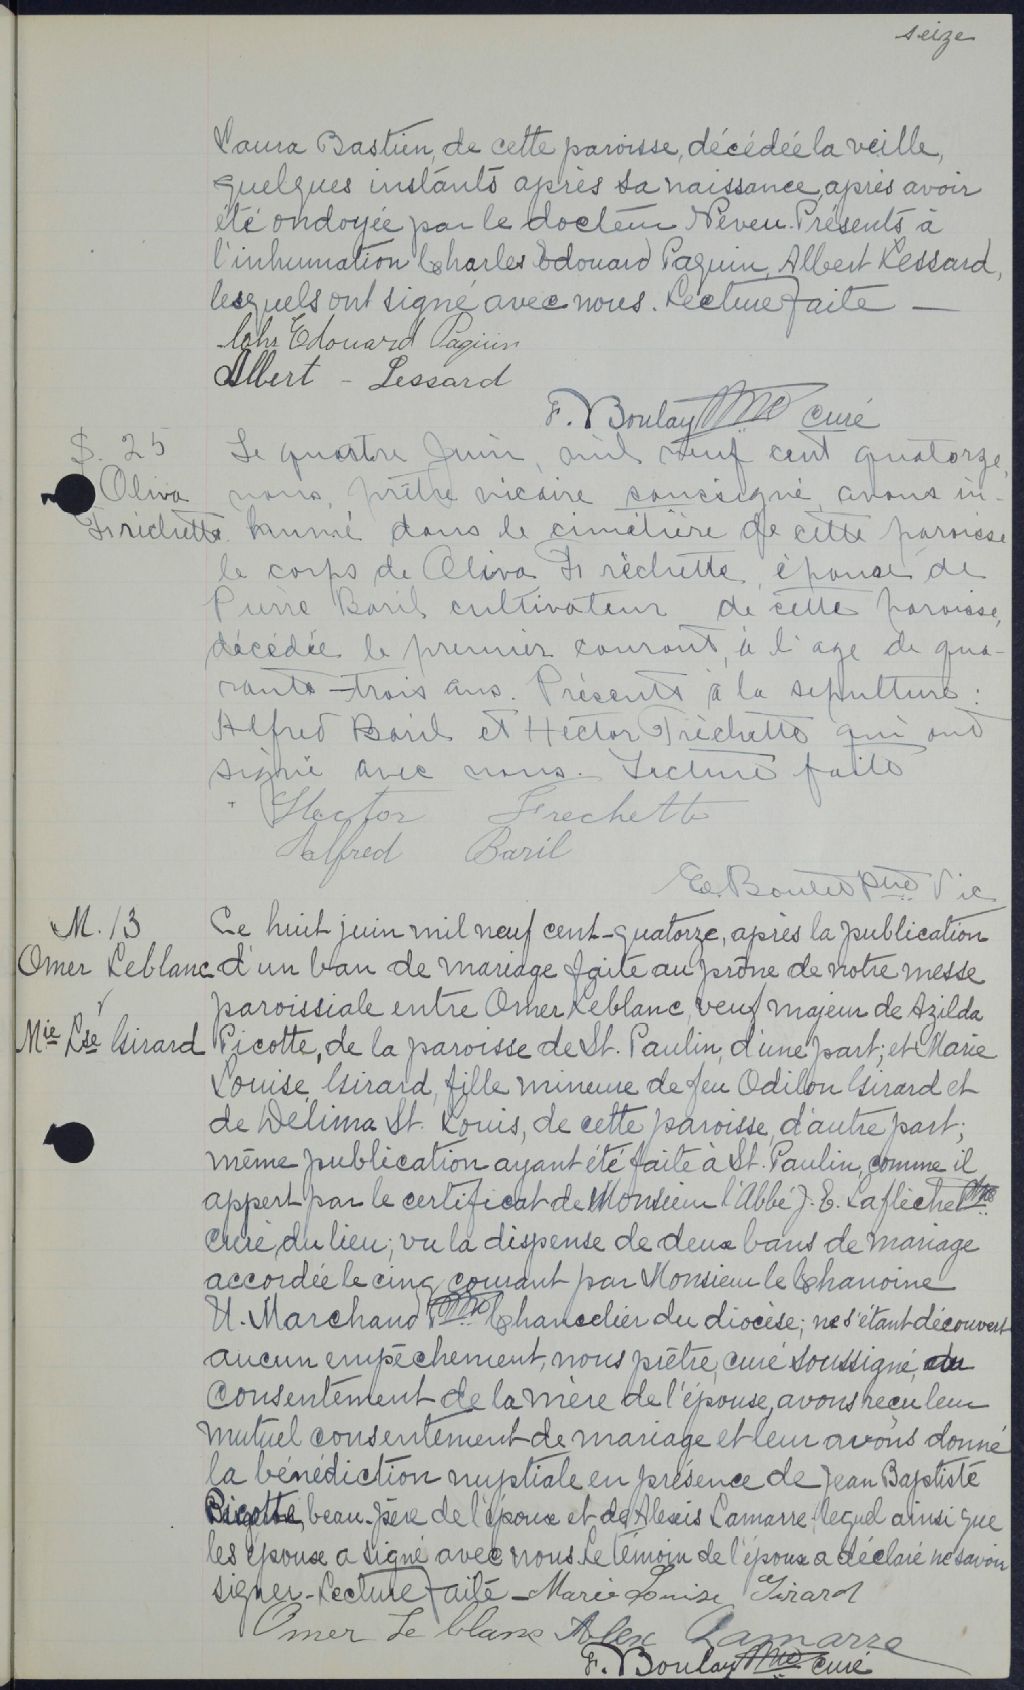 seize
Laura Bastien, de cette paroisse, décédée la veille,
quelques instants après sa naissance, après avoir
été ondoyée par le docteur Neveu. Présents à
l'inhumation Charles Edouard Paquin, Albert Lessard,
lesquels ont signé avec nous. Lecture faite —
Chs Edouard Paquin
Albert - Lessard
F. Boulay Ptre curé
S. 25
Oliva
Fréchette
Le quatre Juin, mil neuf cent quatorze,
nous, prêtre vicaire soussigné, avons in-
humé dans le cimetière de cette paroisse
le corps de Oliva Fréchette, épouse de
Pierre Baril cultivateur de cette paroisse,
décédée le premier courant, à l'age de qua-
rante-trois ans. Présents à la sépulture :
Alfred Baril et Hector Fréchette qui ont
signé avec nous. Lecture faite
Hector Frechette
Alfred Baril
Ptre Vic
M. 13
Omer Leblanc
&
Mie Lse Girard
Le huit juin mil neuf cent-quatorze, après la publication
d'un ban de mariage faite au prône de notre messe
paroissiale entre Omer Leblanc, veuf majeur de Azilda
Picotte, de la paroisse de St. Paulin, d'une part; et Marie
Louise Girard, fille mineure de feu Odilon Girard et
de Délima St. Louis, de cette paroisse, d'autre part;
même publication ayant été faite à St. Paulin, comme il
appert par le certificat de Monsieur l'Abbé J. E. Laflèche Ptre
curé du lieu; vu la dispense de deux bans de mariage
accordée le cinq courant par Monsieur le Chanoine
U. Marchand Ptre Chancelier du diocèse; ne s'étant découvert
aucun empêchement, nous prêtre, curé soussigné, du
consentement de la mère de l'épouse, avons reçu leur
mutuel consentement de mariage et leur avons donné
la bénédiction nuptiale en présence de Jean Baptiste
Picotte, beau-père de l'époux et de Alexis Lamarre, lequel ainsi que
les époux a signé avec nous. Le témoin de l'époux a déclaré ne savoir
signer. Lecture faite — Marie Louise Girard
Omer Le blanc Alex Lamarre
F. Boulay Ptre curé